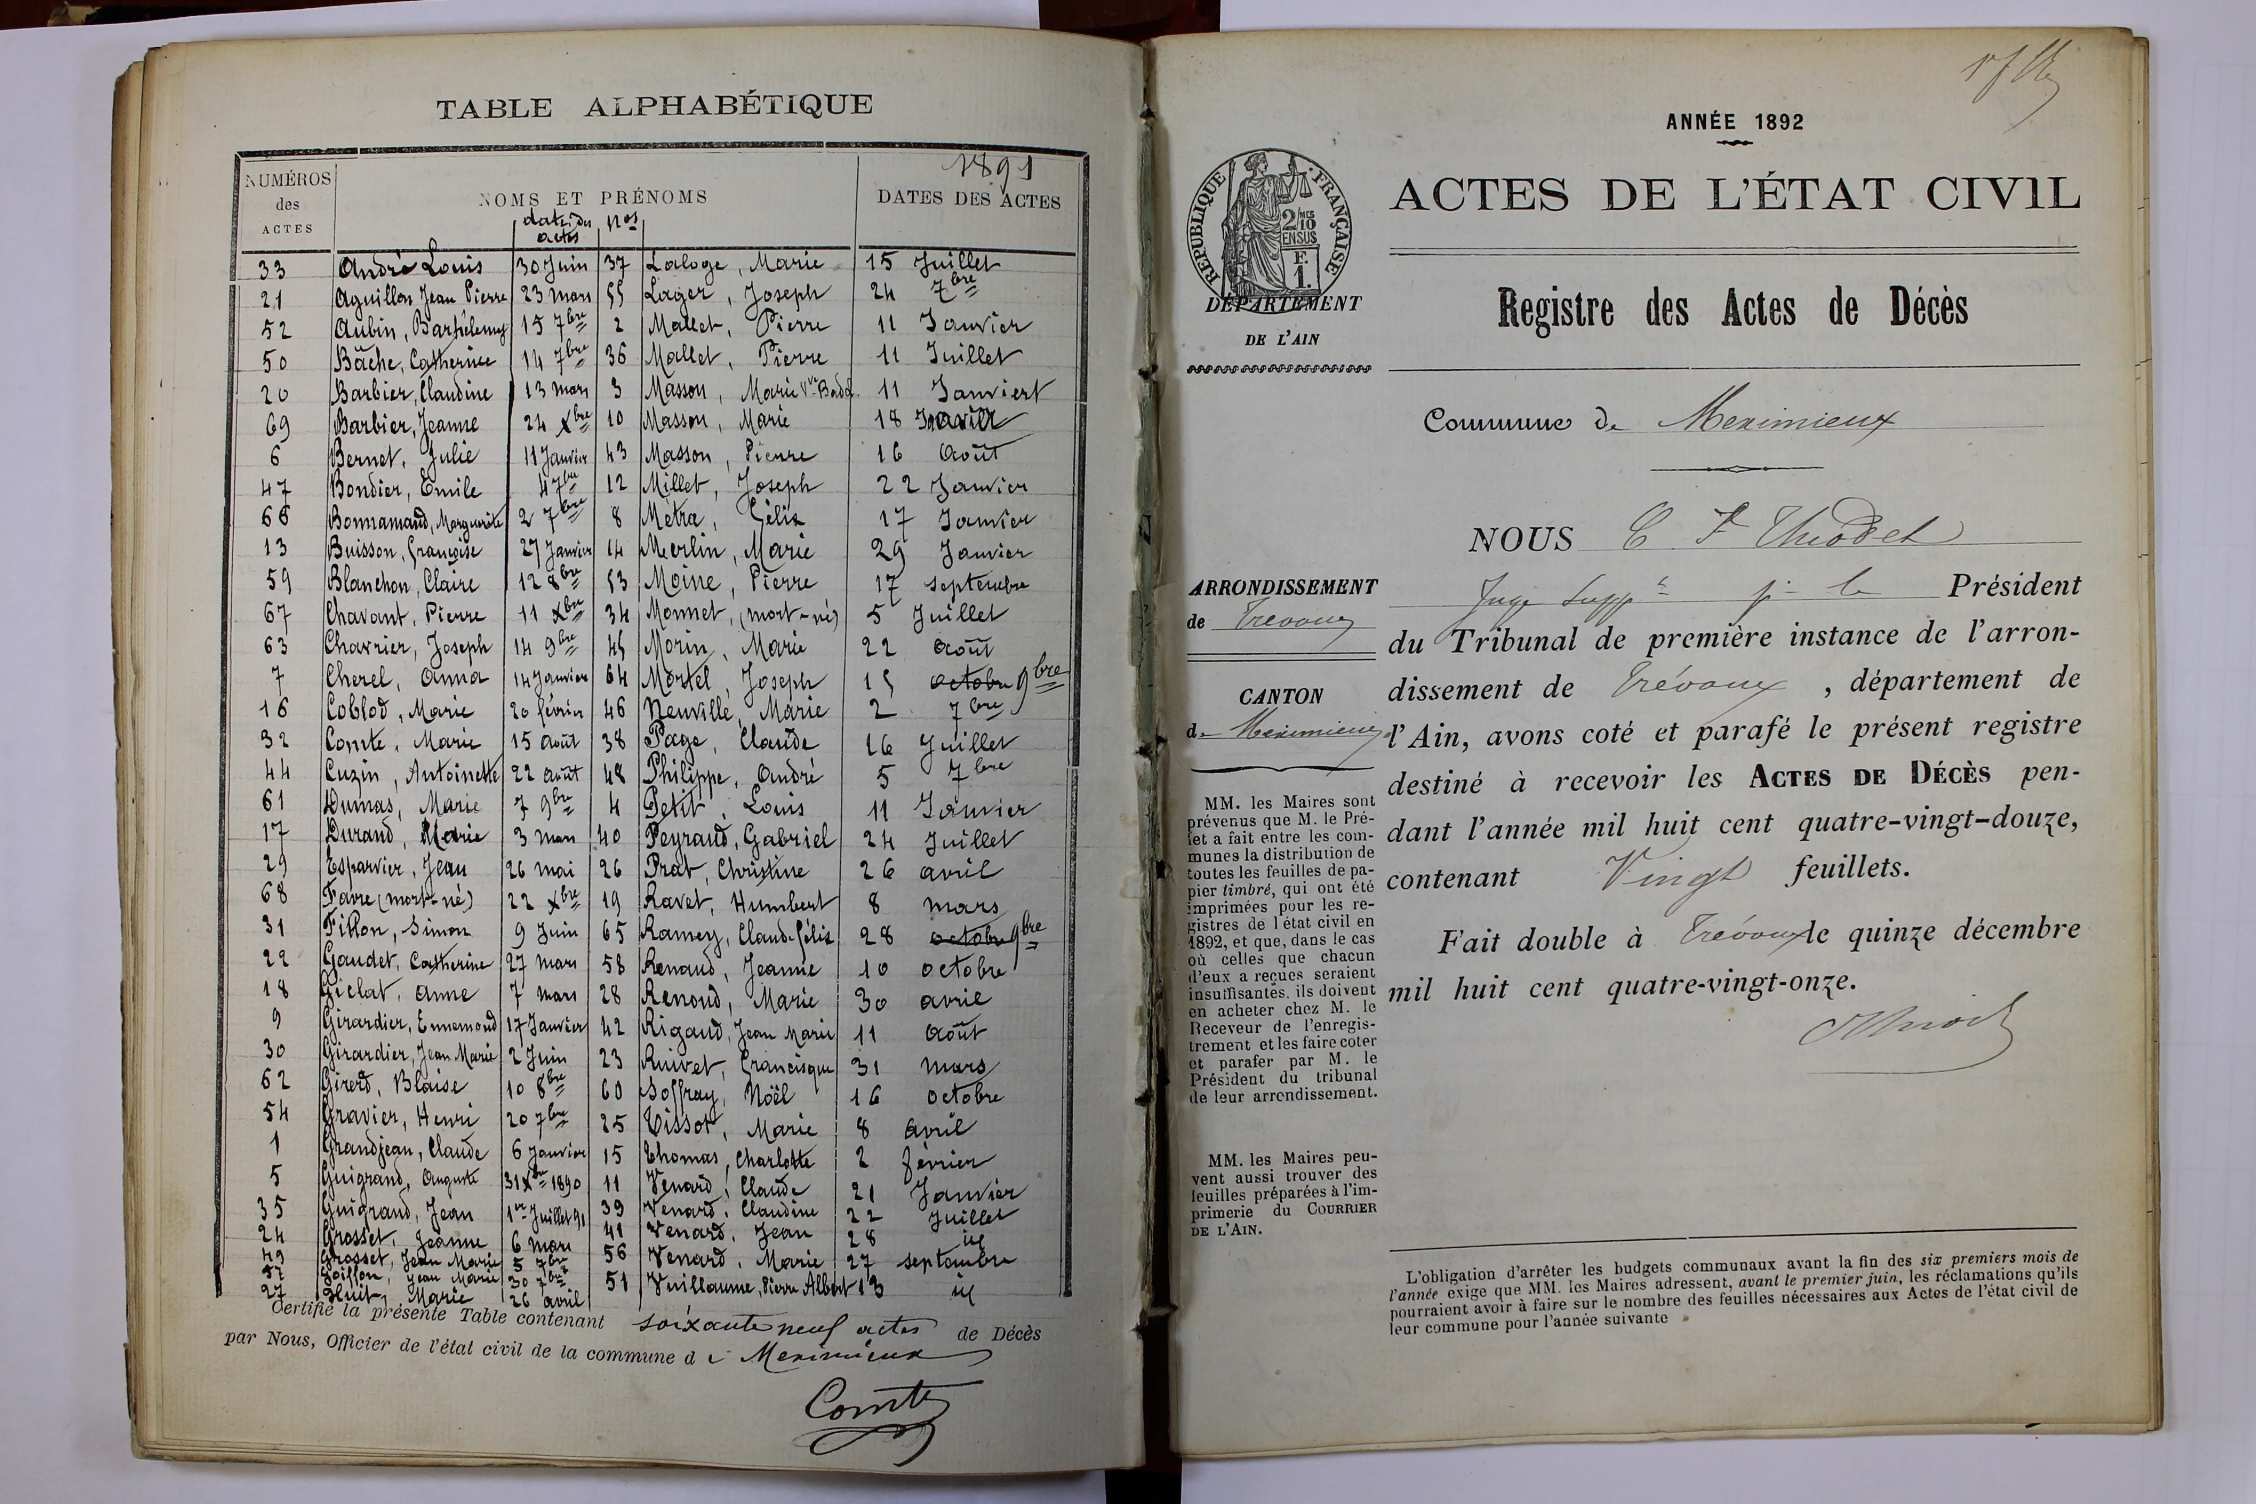 TABLE ALPHABÉTIQUE
1891
NUMÉROS des ACTES
NOMS ET PRÉNOMS
DATES DES ACTES
dates des actes
Nos
33 André Louis 30 Juin 37 Laloge, Marie 15 Juillet
21 Aguillon Jean Pierre 23 mars 55 Lager, Joseph 24 7bre
52 Aubin, Barthélemy 15 7bre 2 Mallet, Pierre 11 Janvier
50 Bâche, Catherine 14 7bre 36 Mallet, Pierre 11 Juillet
20 Barbier, Claudine 13 mars 3 Masson, Marie Vve Badd. 11 Janviert
69 Barbier, Jeanne 24 Xbre 10 Masson, Marie 18 Janvier
6 Bernet, Julie 11 Janvier 43 Masson, Pierre 16 Août
47 Bondier, Emile 4 7bre 12 Millet, Joseph 22 Janvier
66 Bonnamand, Marguerite 2 7bre 8 Métra, Félix 17 Janvier
13 Buisson, Françoise 27 Janvier 14 Merlin, Marie 29 Janvier
59 Blanchon, Claire 12 8bre 53 Moine, Pierre 17 septembre
67 Chavant, Pierre 11 Xbre 34 Monnet, (mort-né) 5 Juillet
63 Chavrier, Joseph 14 9bre 45 Morin, Marie 22 Août
7 Cherel, Anna 14 Janvier 64 Mortel, Joseph 15 octobre 9bre
16 Coblod, Marie 20 février 46 Neuville, Marie 2 7bre
32 Comte, Marie 15 Août 38 Page, Claude 16 Juillet
44 Cuzin, Antoinette 22 août 48 Philippe, André 5 7bre
61 Dumas, Marie 7 9bre 4 Petit, Louis 11 Janvier
17 Durand, Marie 3 mars 40 Peyraud, Gabriel 24 Juillet
29 Esparvier, Jean 26 mai 26 Prat, Christine 26 avril
68 Favre (mort-né) 22 Xbre 19 Ravet, Humbert 8 mars
31 Fillon, Simon 9 Juin 65 Ramey, Claude Félix 28 octobre 9bre
22 Gaudet, Catherine 27 mars 58 Renaud, Jeanne 10 octobre
18 Giclat, Anne 7 mars 28 Renoud, Marie 30 avril
9 Girardier, Ennemond 17 Janvier 42 Rigaud, Jean Marie 11 Août
30 Girardier, Jean Marie 2 Juin 23 Ruivet, Francisque 31 mars
62 Girerd, Blaise 10 8bre 60 Soffray, Noël 16 octobre
54 Gravier, Henri 20 7bre 25 Tissot, Marie 8 avril
1 Grandjean, Claude 6 Janvier 15 Thomas, Charlotte 2 février
5 Guigrand, Auguste 31 Xbre 1890 11 Venard, Claude 21 Janvier
35 Guigrand, Jean 1er Juillet 91 39 Venard, Claudine 22 Juillet
24 Grosset, Jeanne 6 mars 41 Venard, Jean 28 id
49 Grosset, Jean Marie 5 7bre 56 Venard, Marie 27 septembre
57 Jean Marie 30 7bre 51 Vuillaume, Pierre Albert 13 id
27 Huit, Marie 26 avril
Certifié la présente Table contenant soixante neuf actes de Décès
par Nous, Officier de l'état civil de la commune de Meximieux
Comte
ANNÉE 1892
RÉPUBLIQUE FRANÇAISE
2/10 MES
EN SUS
F. 1.
ACTES DE L'ÉTAT CIVIL
DÉPARTEMENT
DE L'AIN
Registre des Actes de Décès
Commune de Meximieux
NOUS C F Thiodet
Juge Suppt pr le Président
du Tribunal de première instance de l'arron-
dissement de Trévoux, département de
l'Ain, avons coté et parafé le présent registre
destiné à recevoir les ACTES DE DÉCÈS pen-
dant l'année mil huit cent quatre-vingt-douze,
contenant Vingt feuillets.
Fait double à Trévoux le quinze décembre
mil huit cent quatre-vingt-onze.
ARRONDISSEMENT
de Trévoux
CANTON
de Meximieux
MM. les Maires sont
prévenus que M. le Pré-
fet a fait entre les com-
munes la distribution de
toutes les feuilles de pa-
pier timbré, qui ont été
imprimées pour les re-
gistres de l'état civil en
1892, et que, dans le cas
où celles que chacun
d'eux a reçues seraient
insuffisantes, ils doivent
en acheter chez M. le
Receveur de l'enregis-
trement et les faire coter
et parafer par M. le
Président du tribunal
de leur arrondissement.
MM. les Maires peu-
vent aussi trouver des
feuilles préparées à l'im-
primerie du COURRIER
DE L'AIN.
L'obligation d'arrêter les budgets communaux avant la fin des six premiers mois de
l'année exige que MM. les Maires adressent, avant le premier juin, les réclamations qu'ils
pourraient avoir à faire sur le nombre des feuilles nécessaires aux Actes de l'état civil de
leur commune pour l'année suivante